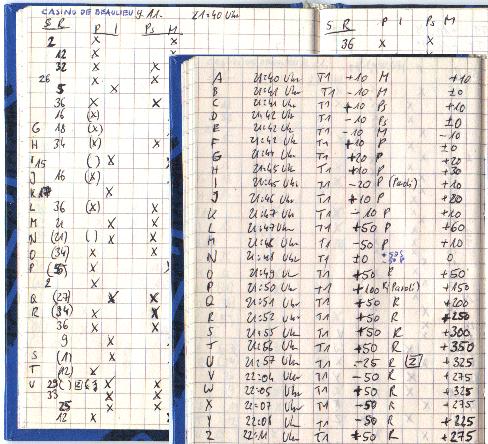 CASINO DE BEAULIEU 9.11. 21:40 Uhr
S R P I Ps M
2 x x
12 x x
32 x x
26 x x
5 x
36 x x
16 (x)
G 18 (x) x
H 34 (x) x
15 ( ) x
J 16 (x)
K 17 x
L 36 (x) x
M 21 x x
N (21) ( ) x x
O (34) x x
P x
2 x x
Q (27) x x
R (34) x x
36 x x
9 x
S (11) x
T (12) x
x x
33 x x
25 x x
12 x x
S R P I Ps M
36 x x
A 21:40 Uhr T1 +10 M +10
B 21:41 Uhr T1 -10 M ±0
C 21:41 Uhr T1 +10 Ps +10
D 21:42 Uhr T1 -10 Ps ±0
E 21:42 Uhr T1 -10 M -10
F 21:42 Uhr T1 +10 P ±0
G 21:44 Uhr T1 +20 P +20
H 21:45 Uhr T1 +10 P +30
I 21:45 Uhr T1 -20 P (Paroli) +10
J 21:46 Uhr T1 +10 P +20
K 21:47 Uhr T1 -10 P +10
L 21:47 Uhr T1 +50 P +60
M 21:48 Uhr T1 -50 P +10
N 21:48 Uhr T1 ±0 0
O 21:49 Uhr T1 +50 R +50
P 21:50 Uhr T1 +100 R (Paroli) +150
Q 21:51 Uhr T1 +50 R +200
R 21:52 Uhr T1 +50 R +250
S 21:55 Uhr T1 +50 R +300
T 21:56 Uhr T1 +50 R +350
U 21:57 Uhr T1 -25 R [Z] +325
V 22:04 Uhr T1 -50 R +275
W 22:05 Uhr T1 +50 R +325
X 22:07 Uhr T1 -50 R +275
Y 22:08 Uhr T1 -50 R +225
Z 22:11 Uhr T1 +50 R +275